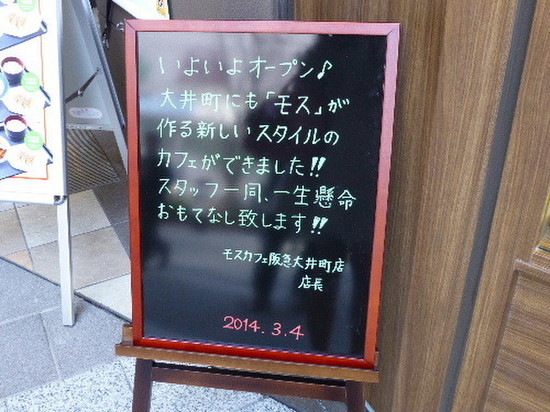 いよいよオープン♪
大井町にも「モス」が
作る新しいスタイルの
カフェができました!!
スタッフ一同、一生懸命
おもてなし致します!!
モスカフェ阪急大井町店
店長
2014.3.4